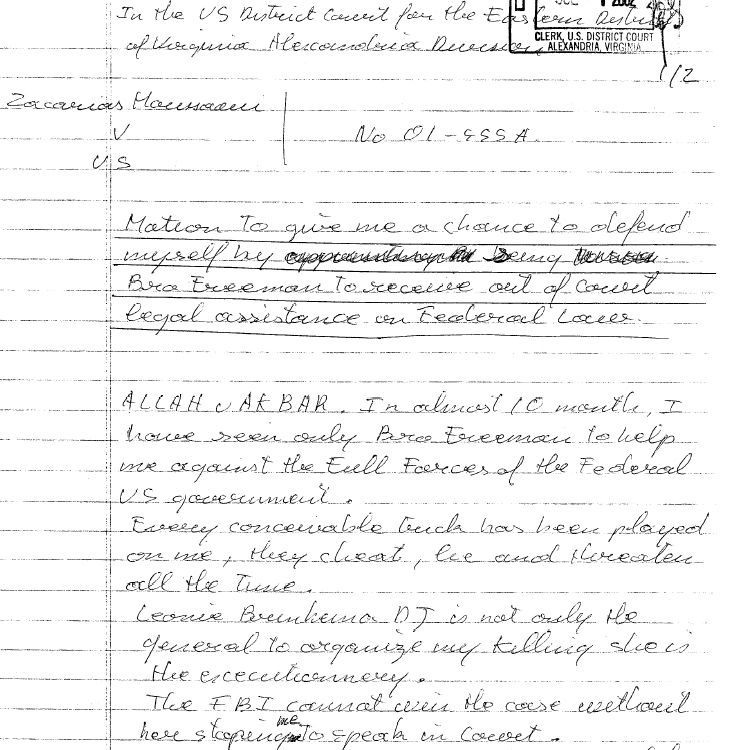 In the US District Court for the Eastern District
of Virginia Alexandria Division
2002
CLERK, U.S. DISTRICT COURT
ALEXANDRIA, VIRGINIA
1/2
Zacarias Moussaoui
V
US
No 01-455 A
Motion to give me a chance to defend
myself by being
Bro Freeman to receive out of Court
legal assistance on Federal Lawer.
ALLAH u AKBAR. In almost 10 month, I
have seen only Bro Freeman to help
me against the Full Forces of the Federal
US government.
Every conceivable trick has been played
on me, they cheat, lie and threaten
all the Time.
Leonie Brinkema DJ is not only the
general to organize my killing she is
the executionnery.
The FBI cannot win the case without
her stoping me to speak in Court.